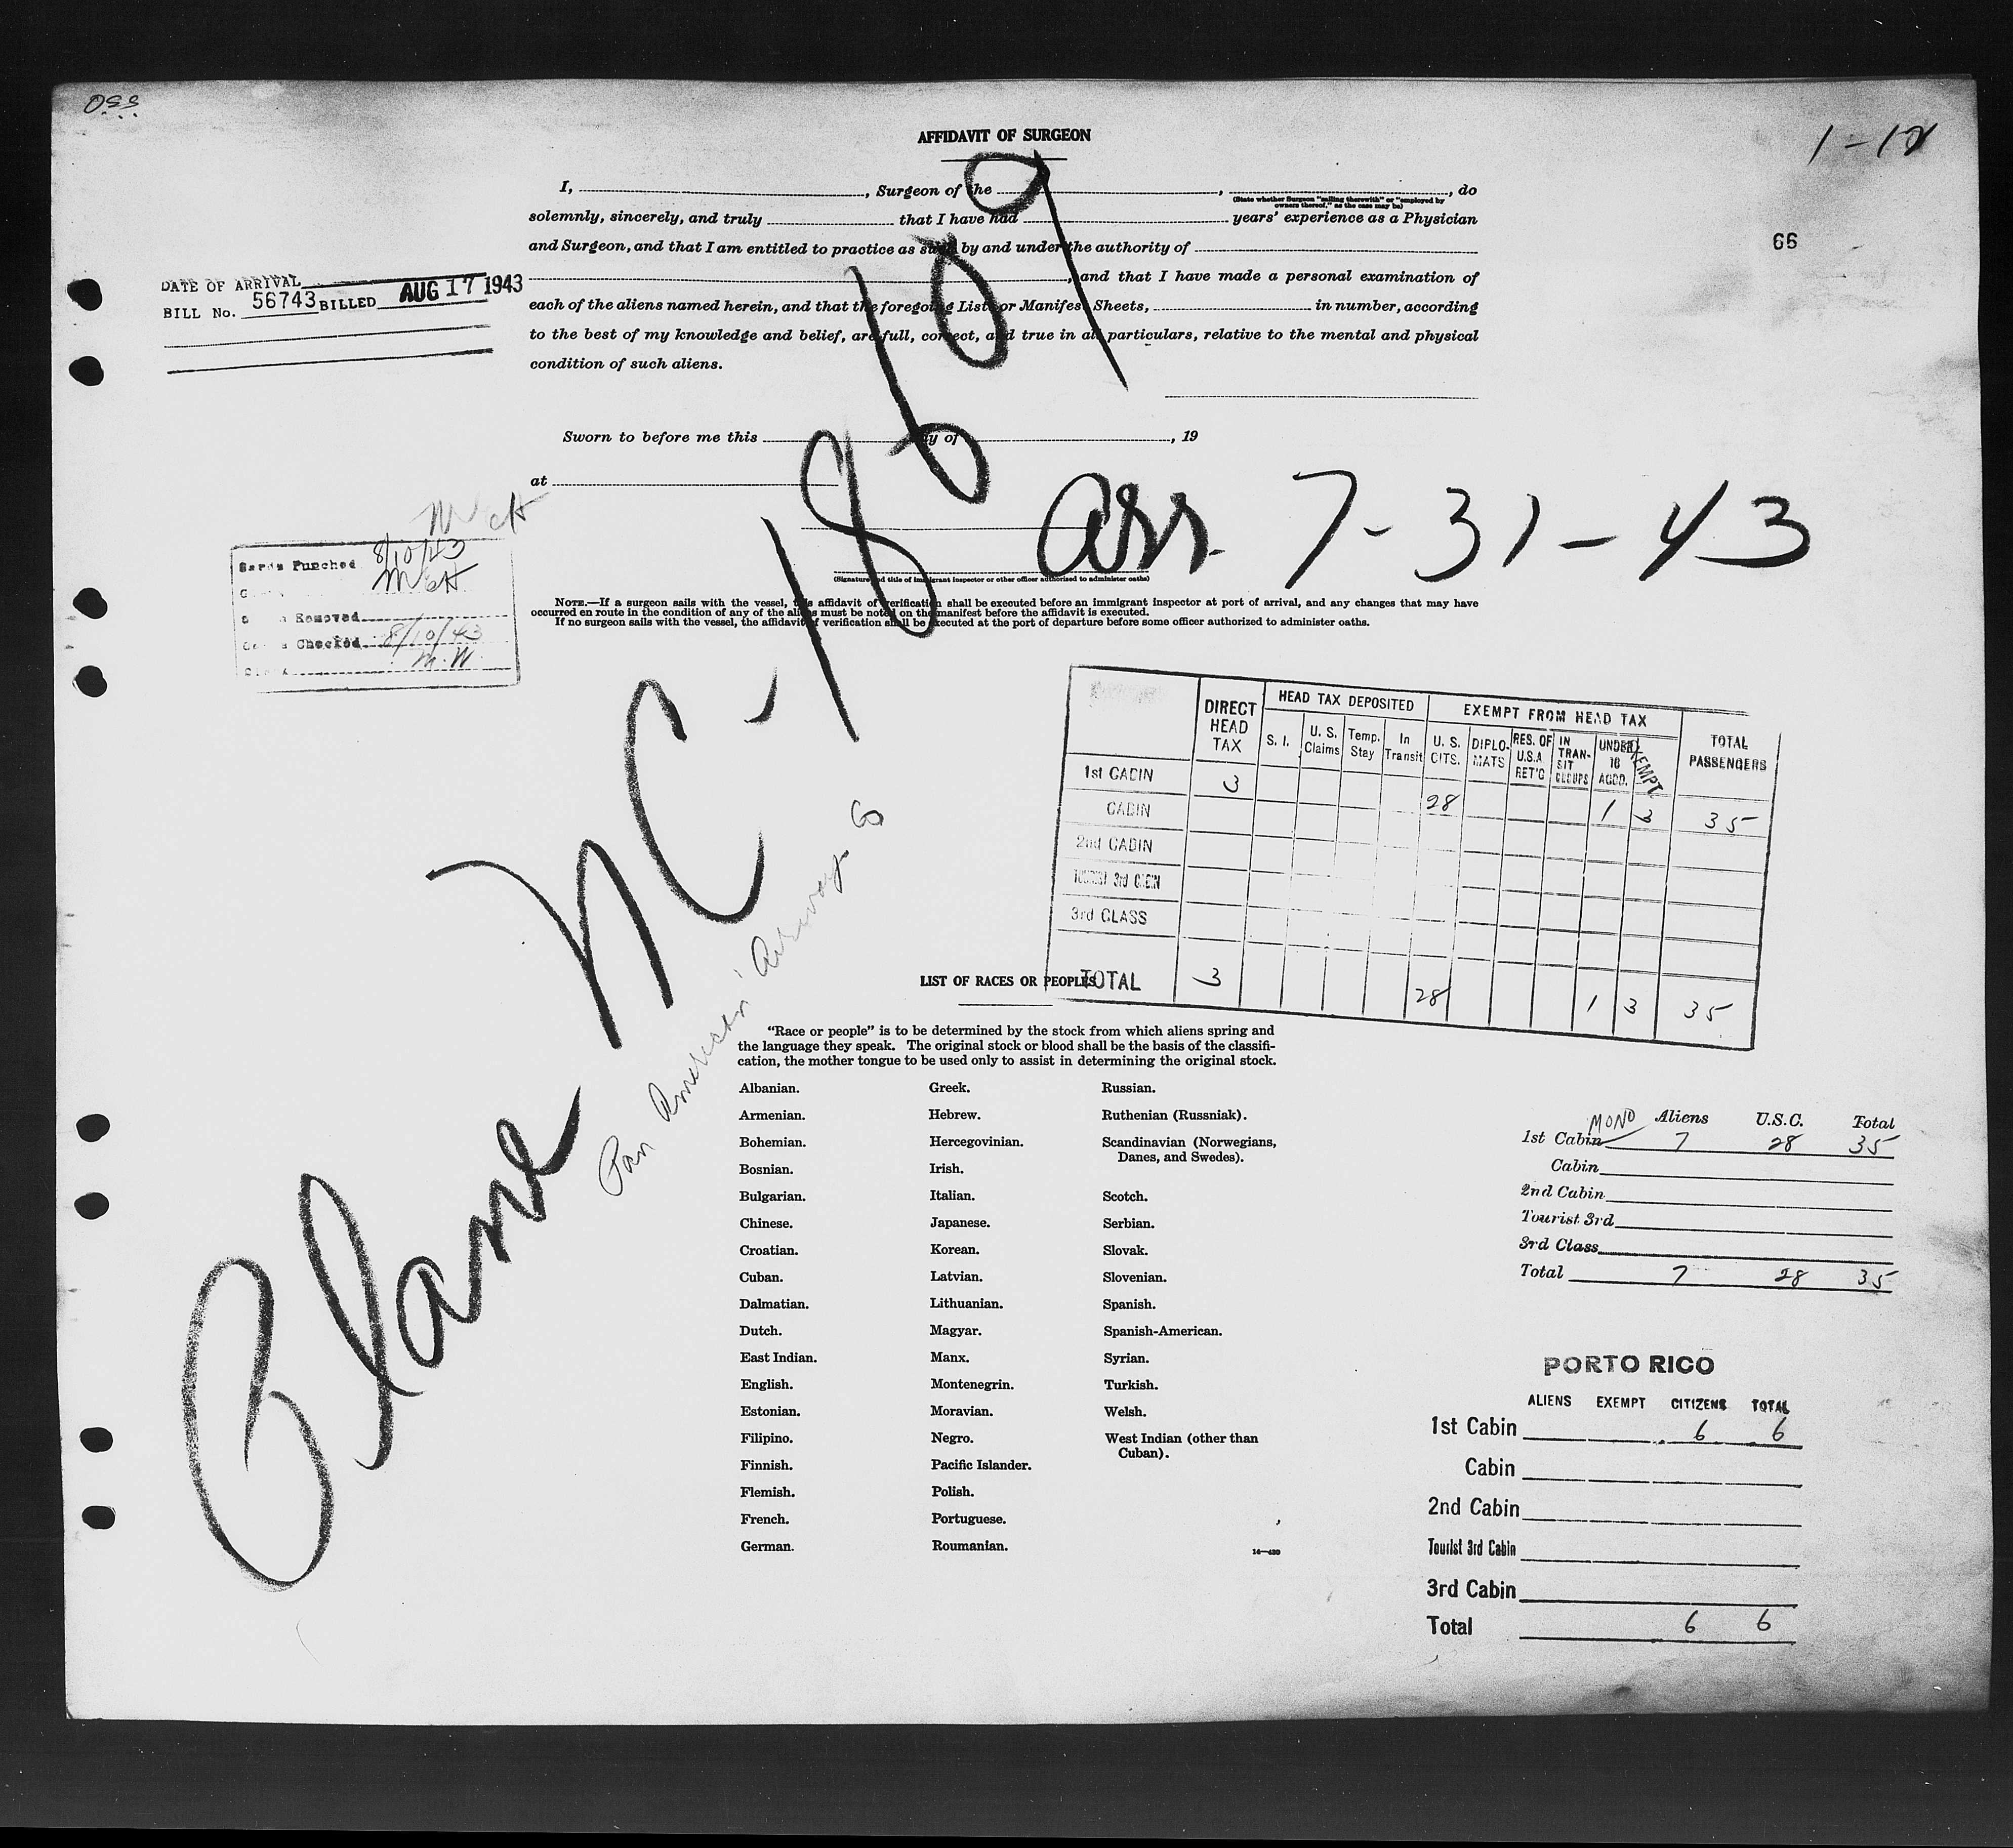 AFFIDAVIT OF SURGEON
1-12
66
I, , Surgeon of the , , do
(State whether Surgeon "sailing therewith" or "employed by owners thereof," as the case may be)
solemnly, sincerely, and truly that I have had years' experience as a Physician
and Surgeon, and that I am entitled to practice as such by and under the authority of
, and that I have made a personal examination of
each of the aliens named herein, and that the foregoing List or Manifest Sheets, in number, according
to the best of my knowledge and belief, are full, correct, and true in all particulars, relative to the mental and physical
condition of such aliens.
Sworn to before me this day of , 19
at
(Signature and title of immigrant inspector or other officer authorized to administer oaths)
NOTE.—If a surgeon sails with the vessel, this affidavit of verification shall be executed before an immigrant inspector at port of arrival, and any changes that may have
occurred en route in the condition of any of the aliens must be noted on the manifest before the affidavit is executed.
If no surgeon sails with the vessel, the affidavit of verification shall be executed at the port of departure before some officer authorized to administer oaths.
DATE OF ARRIVAL
BILL No. 56743 BILLED AUG 17 1943
Cards Punched 8/10/43
Removed
Checked 8/10/43
M.W.
arr. 7-31-43
Plane NC-18609
Pan American Airways
6
DIRECT HEAD TAX
HEAD TAX DEPOSITED
EXEMPT FROM HEAD TAX
TOTAL PASSENGERS
S. I. U. S. Claims Temp. Stay In Transit U. S. CITS. DIPLO-MATS RES. OF U.S.A RET'G IN TRAN-SIT GROUPS UNDER 16 ACCD. EXEMPT
1st CABIN 3
CABIN 28 1 3 35
2nd CABIN
TOURIST 3rd CABIN
3rd CLASS
TOTAL 3 28 1 3 35
LIST OF RACES OR PEOPLES
"Race or people" is to be determined by the stock from which aliens spring and
the language they speak. The original stock or blood shall be the basis of the classifi-
cation, the mother tongue to be used only to assist in determining the original stock.
Albanian.
Armenian.
Bohemian.
Bosnian.
Bulgarian.
Chinese.
Croatian.
Cuban.
Dalmatian.
Dutch.
East Indian.
English.
Estonian.
Filipino.
Finnish.
Flemish.
French.
German.
Greek.
Hebrew.
Hercegovinian.
Irish.
Italian.
Japanese.
Korean.
Latvian.
Lithuanian.
Magyar.
Manx.
Montenegrin.
Moravian.
Negro.
Pacific Islander.
Polish.
Portuguese.
Roumanian.
Russian.
Ruthenian (Russniak).
Scandinavian (Norwegians,
Danes, and Swedes).
Scotch.
Serbian.
Slovak.
Slovenian.
Spanish.
Spanish-American.
Syrian.
Turkish.
Welsh.
West Indian (other than
Cuban).
MONO Aliens U.S.C. Total
1st Cabin 7 28 35
Cabin
2nd Cabin
Tourist 3rd
3rd Class
Total 7 28 35
PORTO RICO
ALIENS EXEMPT CITIZENS TOTAL
1st Cabin 6 6
Cabin
2nd Cabin
Tourist 3rd Cabin
3rd Cabin
Total 6 6